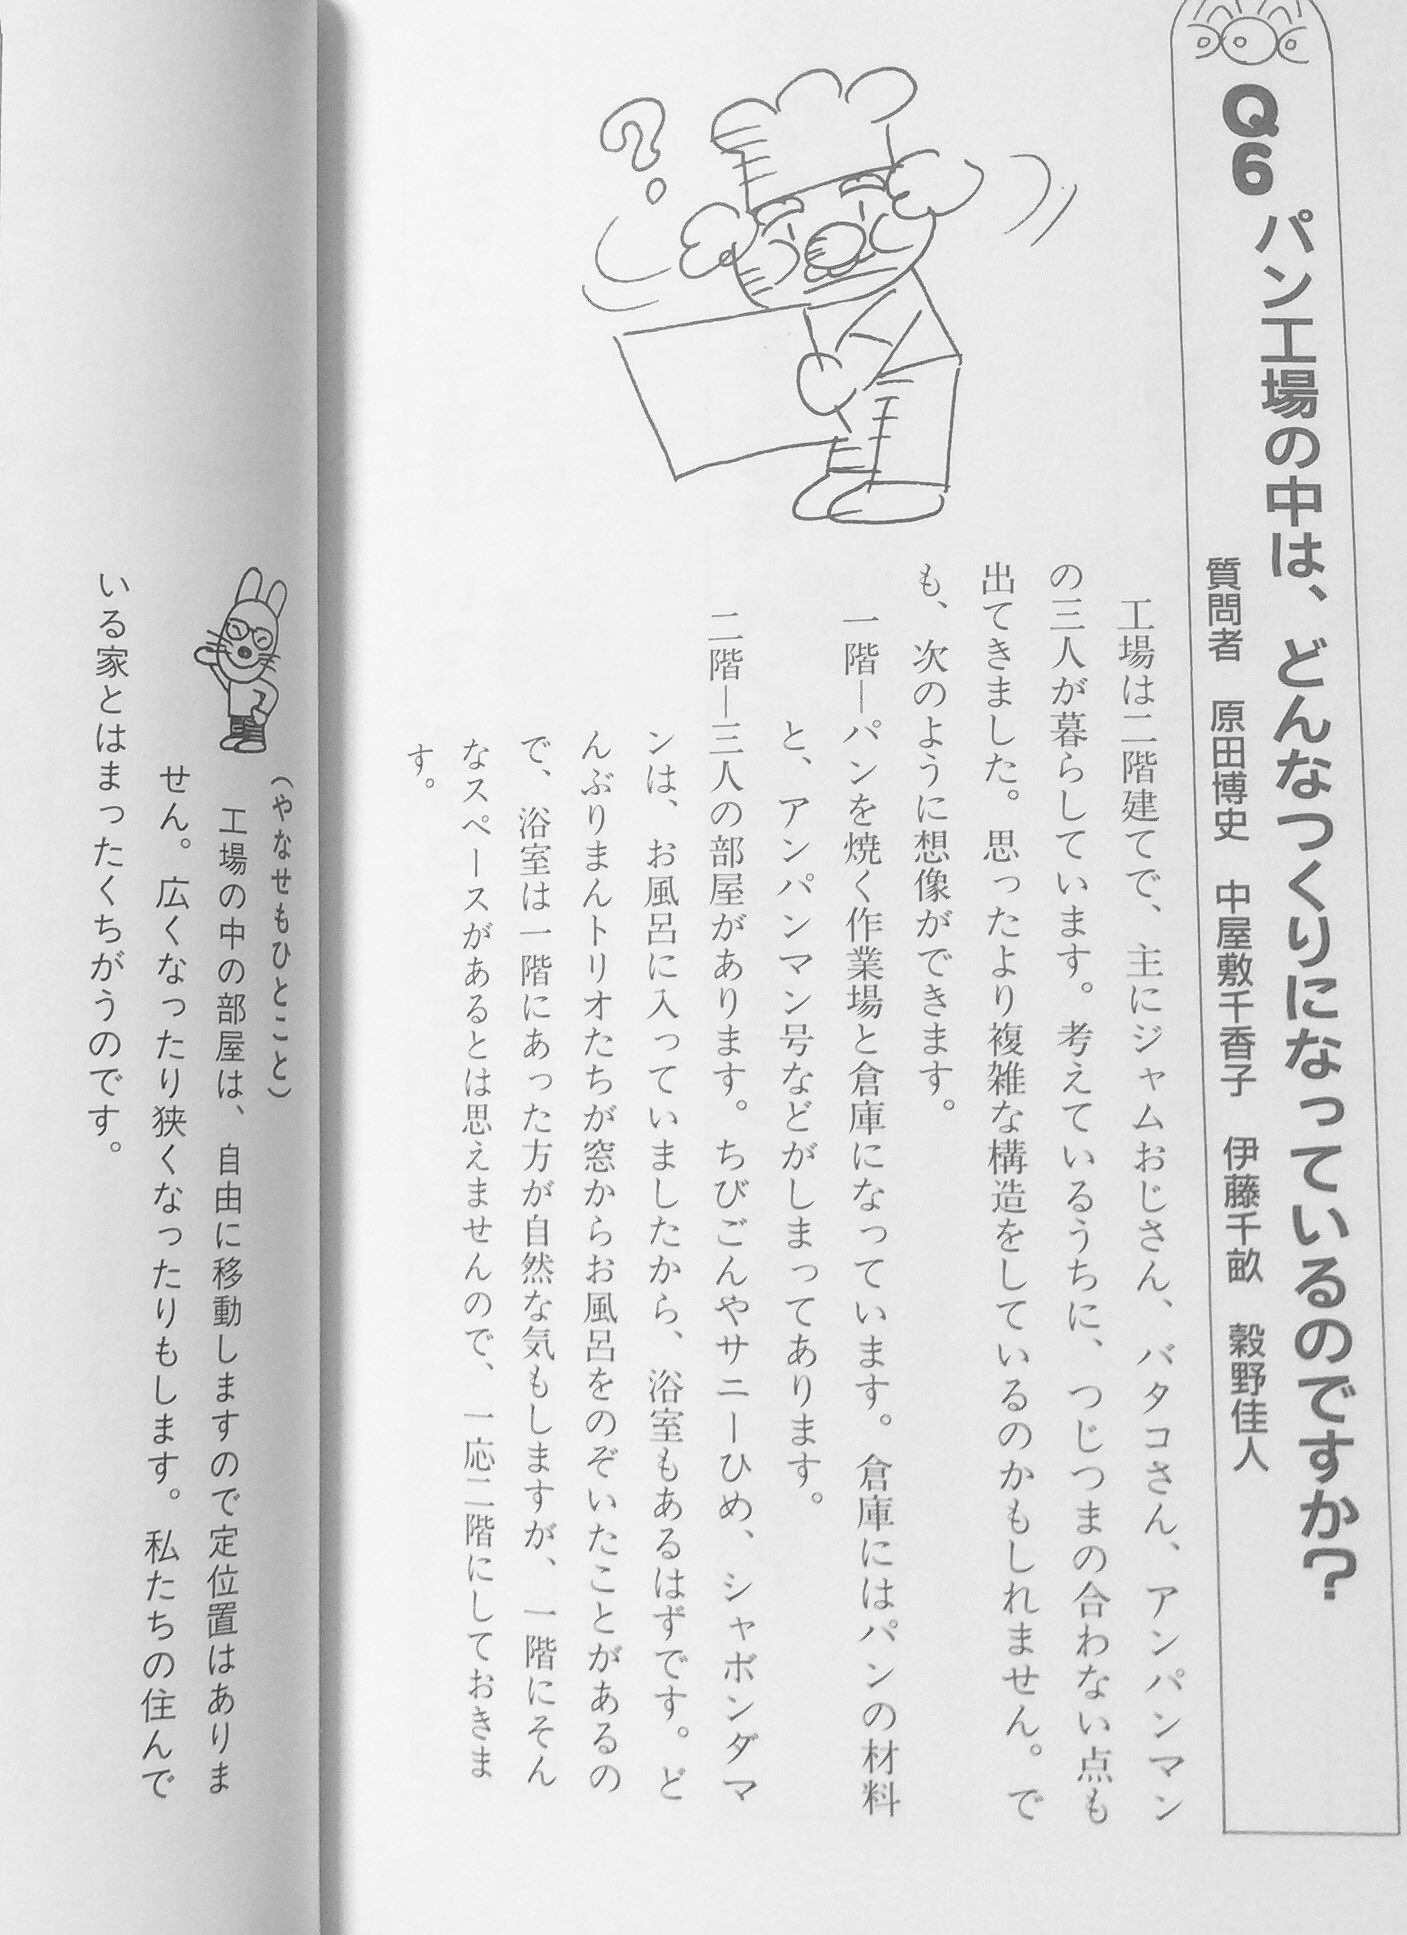 Q6 パン工場の中は、どんなつくりになっているのですか?
質問者 原田博史 中屋敷千香子 伊藤千畝 穀野佳人
工場は二階建てで、主にジャムおじさん、バタコさん、アンパンマン
の三人が暮らしています。考えているうちに、つじつまの合わない点も
出てきました。思ったより複雑な構造をしているのかもしれません。で
も、次のように想像ができます。
一階―パンを焼く作業場と倉庫になっています。倉庫にはパンの材料
と、アンパンマン号などがしまってあります。
二階―三人の部屋があります。ちびごんやサニーひめ、シャボンダマ
ンは、お風呂に入っていましたから、浴室もあるはずです。ど
んぶりまんトリオたちが窓からお風呂をのぞいたことがあるの
で、浴室は一階にあった方が自然な気もしますが、一階にそん
なスペースがあるとは思えませんので、一応二階にしておきま
す。
?
(やなせもひとこと)
工場の中の部屋は、自由に移動しますので定位置はありま
せん。広くなったり狭くなったりもします。私たちの住んで
いる家とはまったくちがうのです。